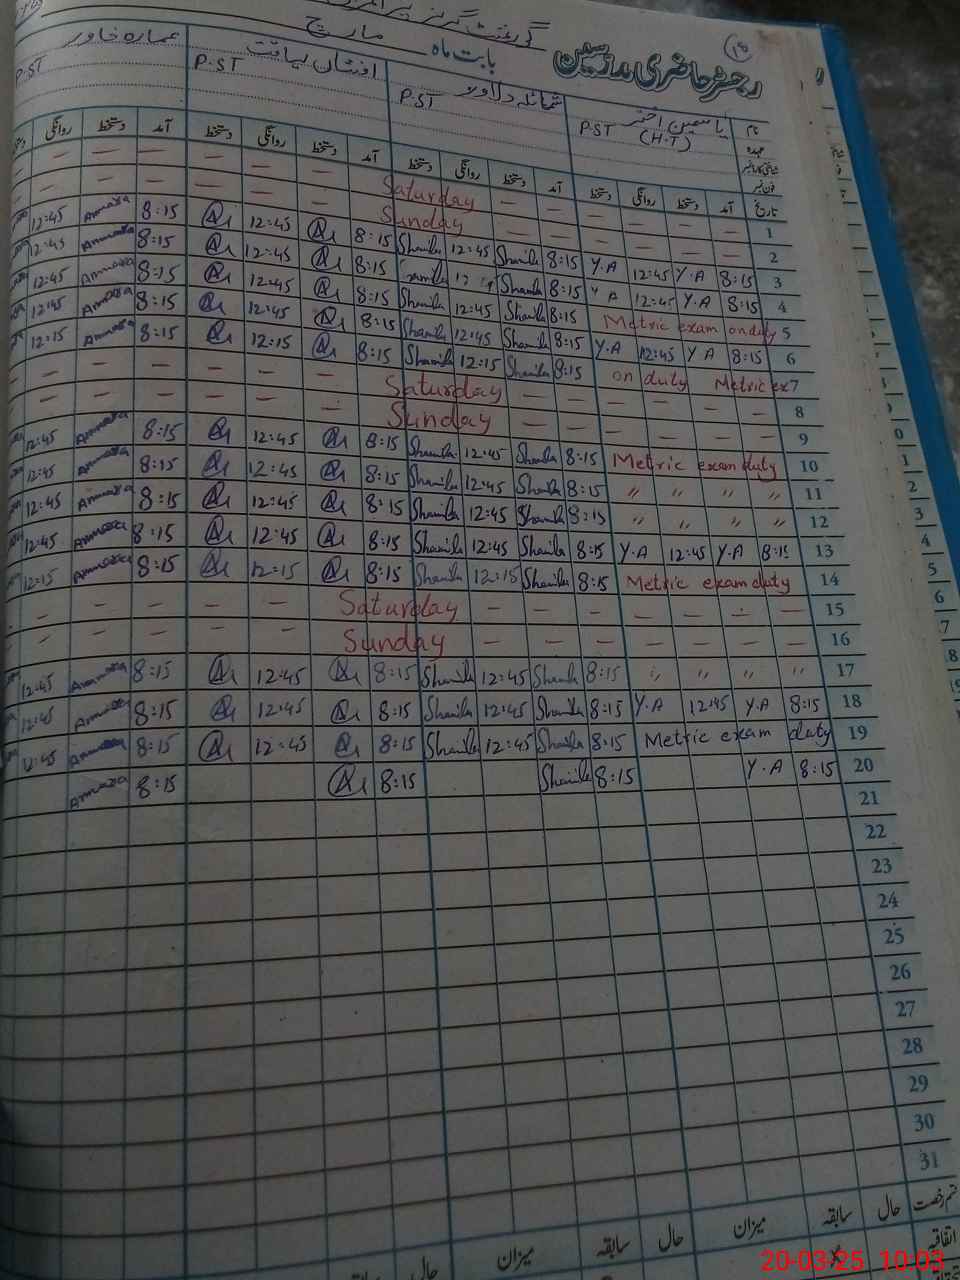 18
رجسٹر حاضری مدرسین بابت ماہ مارچ
نام یاسمین اختر شمائلہ دلاور افشاں لیاقت عمارہ خاور
عہدہ P.ST (H.T) P.ST P.ST P.ST
تاریخ آمد دستخط روانگی دستخط آمد دستخط روانگی دستخط آمد دستخط روانگی دستخط آمد دستخط روانگی
1 Saturday
2 Sunday
3 8:15 Y.A 12:45 Y.A 8:15 Shamila 12:45 Shamila 8:15 12:45 8:15 Ammara 12:45
4 8:15 Y.A 12:45 Y A 8:15 Shamila 8:15 12:45 8:15 Ammara 12:45
5 Metric exam on duty 8:15 Shamila 12:45 Shamila 8:15 12:45 8:15 Ammara 12:45
6 8:15 Y A 12:45 Y.A 8:15 Shamila 12:45 Shamila 8:15 12:45 8:15 Ammara 12:45
7 on duty Metric ex 8:15 Shamila 12:15 Shamila 8:15 12:15 8:15 Ammara 12:15
8 Saturday
9 Sunday
10 Metric exam duty 8:15 Shamila 12:45 Shamila 8:15 12:45 8:15 Ammara 12:45
11 〃 〃 〃 〃 8:15 Shamila 12:45 Shamila 8:15 12:45 8:15 Ammara 12:45
12 〃 〃 〃 〃 8:15 Shamila 12:45 Shamila 8:15 12:45 8:15 Ammara 12:45
13 8:15 Y.A 12:45 Y.A 8:15 Shamila 12:45 Shamila 8:15 12:45 8:15 Ammara 12:45
14 Metric exam duty 8:15 Shamila 12:15 Shamila 8:15 12:15 8:15 Ammara 12:15
15 Saturday
16 Sunday
17 〃 〃 〃 〃 8:15 Shamila 12:45 Shamila 8:15 12:45 8:15 Ammara 12:45
18 8:15 Y.A 12:45 Y.A 8:15 Shamila 12:45 Shamila 8:15 12:45 8:15 Ammara 12:45
19 Metric exam duty 8:15 Shamila 12:45 Shamila 8:15 12:45 8:15 Ammara 12:45
20 8:15 Y.A 8:15 Shamila 8:15 8:15 Ammara
21
22
23
24
25
26
27
28
29
30
31
قسم رخصت حال سابقہ میزان حال سابقہ میزان حال سابقہ
اتفاقیہ
20-03-25 10:03